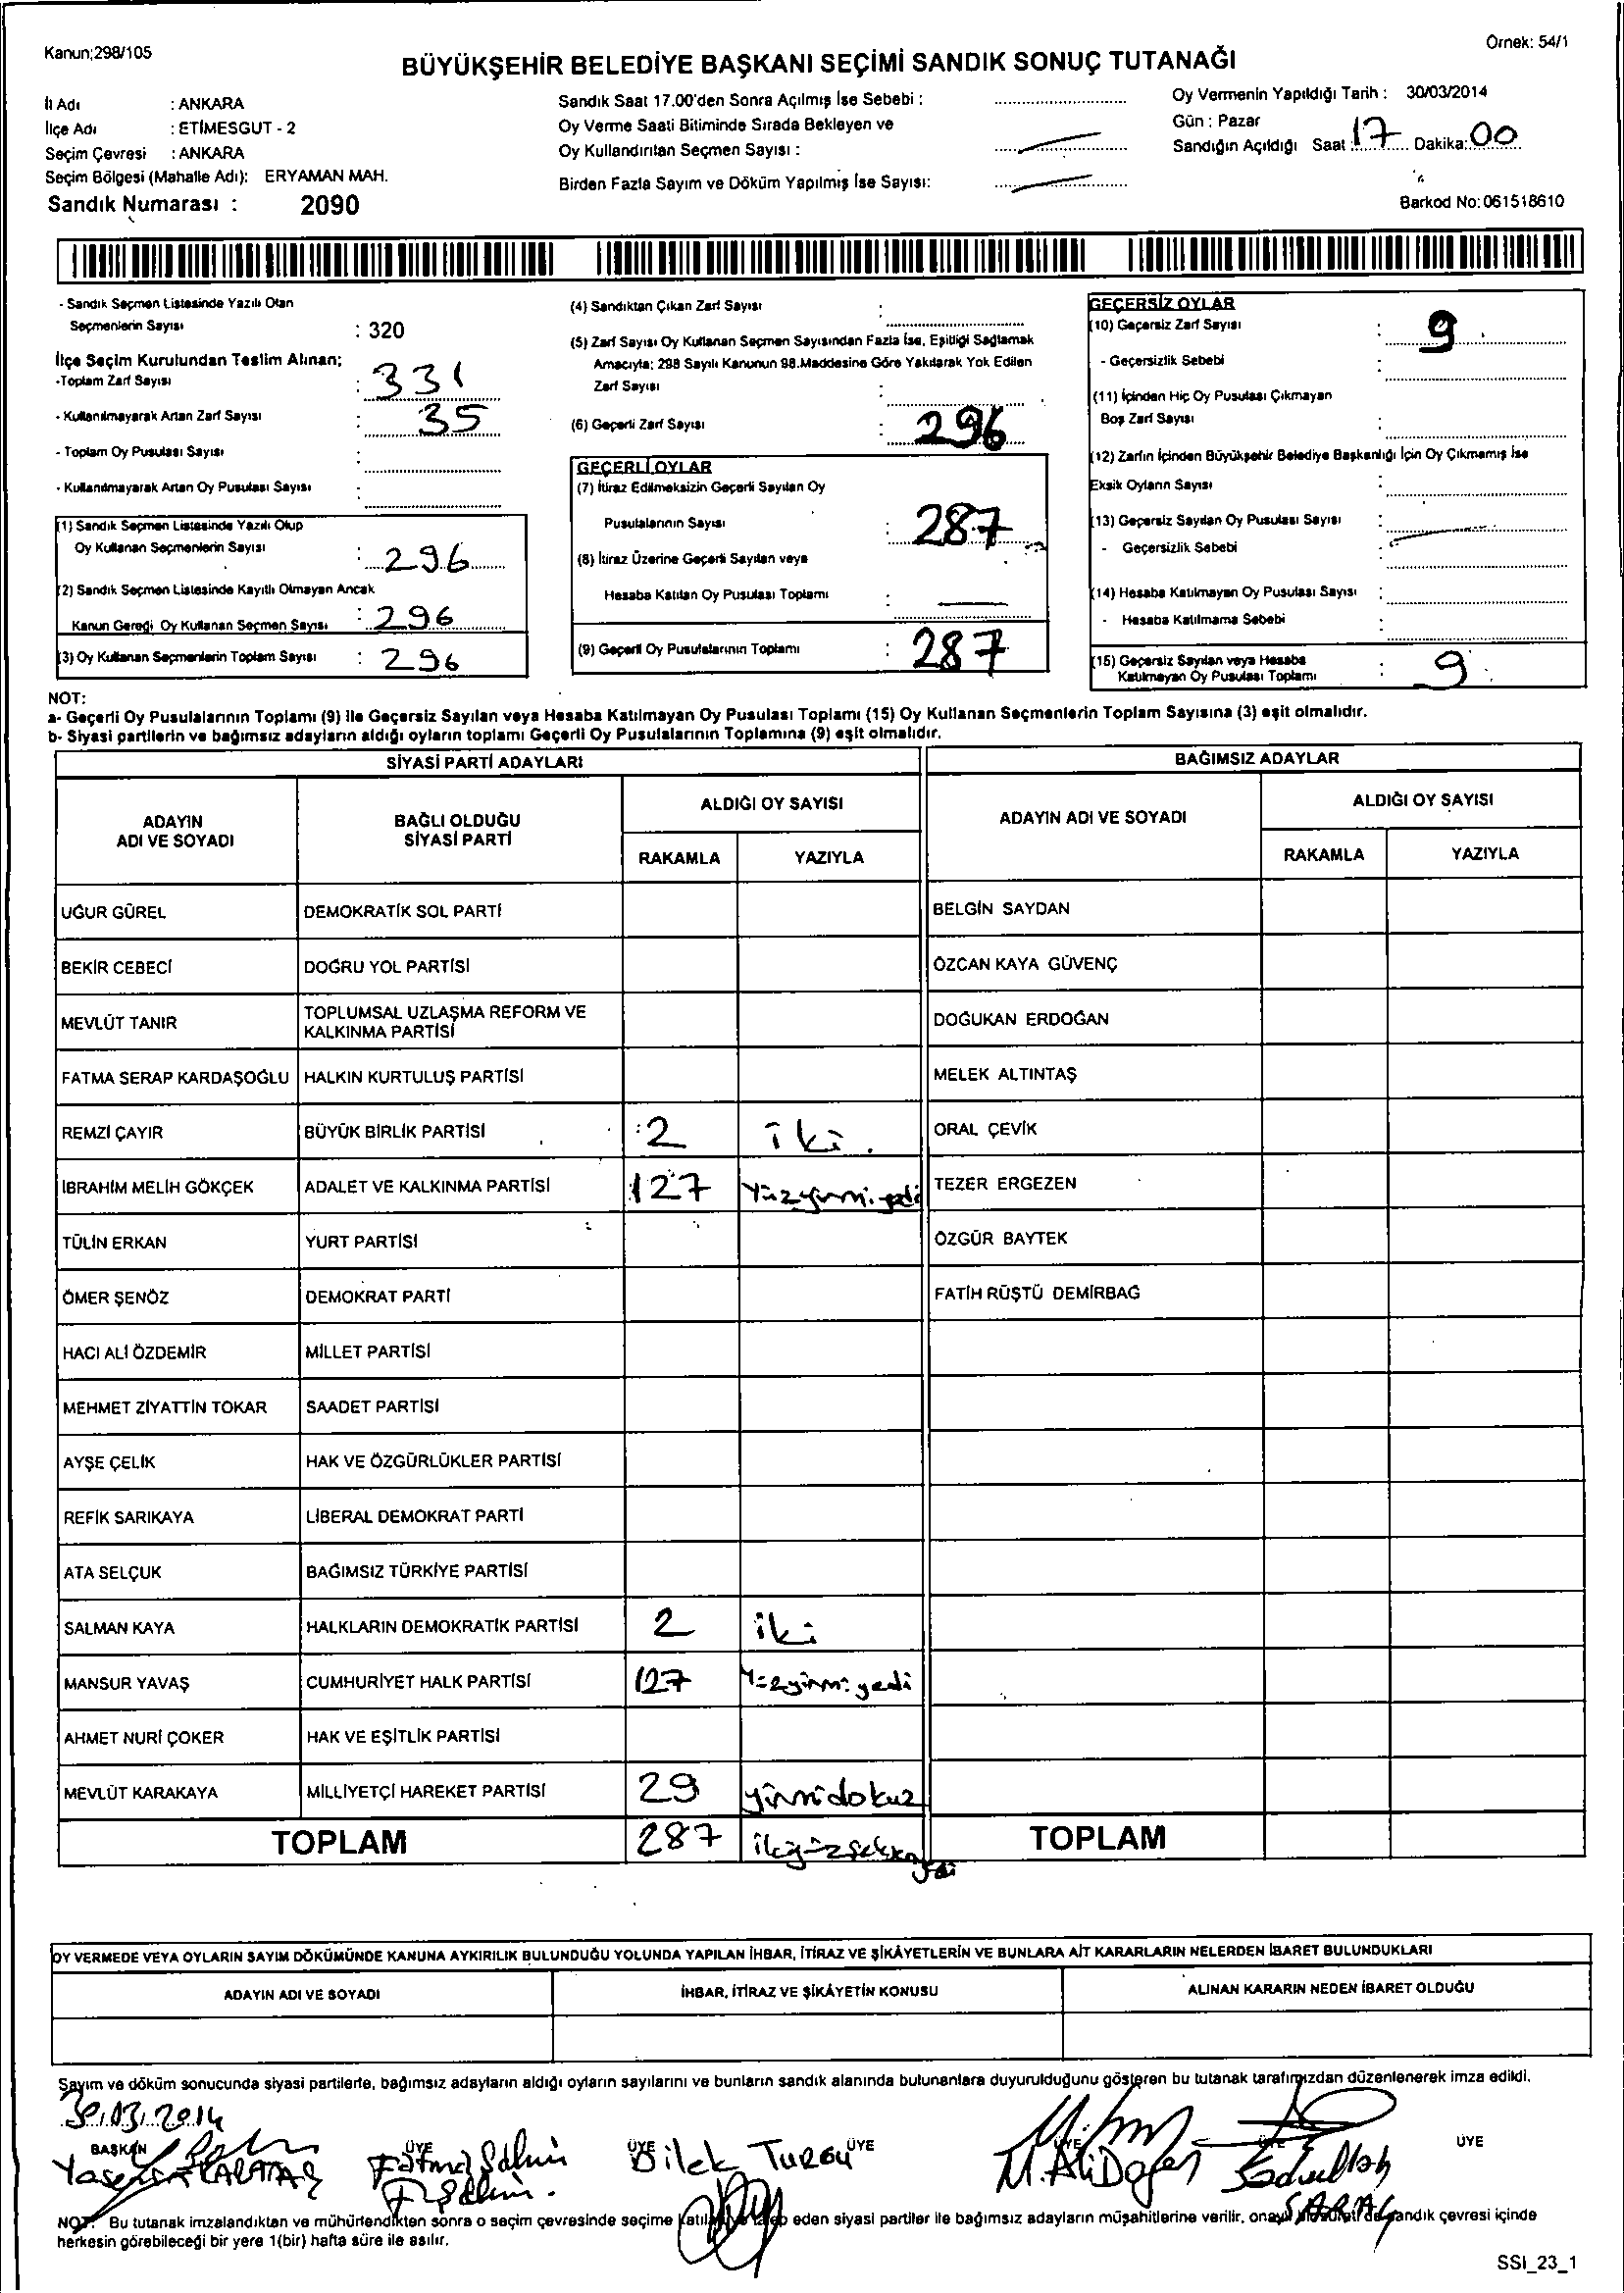 Kanun;298/105
Örnek: 54/1
BÜYÜKŞEHİR BELEDİYE BAŞKANI SEÇİMİ SANDIK SONUÇ TUTANAĞI
İl Adı : ANKARA
İlçe Adı : ETİMESGUT - 2
Seçim Çevresi : ANKARA
Seçim Bölgesi (Mahalle Adı): ERYAMAN MAH.
Sandık Numarası : 2090
Sandık Saat 17.00'den Sonra Açılmış İse Sebebi :
Oy Verme Saati Bitiminde Sırada Bekleyen ve
Oy Kullandırılan Seçmen Sayısı :
Birden Fazla Sayım ve Döküm Yapılmış İse Sayısı:
Oy Vermenin Yapıldığı Tarih : 30/03/2014
Gün : Pazar
Sandığın Açıldığı Saat 17 Dakika: 00
Barkod No: 061518610
- Sandık Seçmen Listesinde Yazılı Olan
Seçmenlerin Sayısı : 320
İlçe Seçim Kurulundan Teslim Alınan;
-Toplam Zarf Sayısı : 331
- Kullanılmayarak Artan Zarf Sayısı : 35
- Toplam Oy Pusulası Sayısı :
- Kullanılmayarak Artan Oy Pusulası Sayısı :
(1) Sandık Seçmen Listesinde Yazılı Olup
Oy Kullanan Seçmenlerin Sayısı : 296
(2) Sandık Seçmen Listesinde Kayıtlı Olmayan Ancak
Kanun Gereği Oy Kullanan Seçmen Sayısı : 296
(3) Oy Kullanan Seçmenlerin Toplam Sayısı : 296
(4) Sandıktan Çıkan Zarf Sayısı :
(5) Zarf Sayısı Oy Kullanan Seçmen Sayısından Fazla İse, Eşitliği Sağlamak
Amacıyla; 298 Sayılı Kanunun 98.Maddesine Göre Yakılarak Yok Edilen
Zarf Sayısı :
(6) Geçerli Zarf Sayısı : 296
GEÇERLİ OYLAR
(7) İtiraz Edilmeksizin Geçerli Sayılan Oy
Pusulalarının Sayısı : 287
(8) İtiraz Üzerine Geçerli Sayılan veya
Hesaba Katılan Oy Pusulası Toplamı :
(9) Geçerli Oy Pusulalarının Toplamı : 287
GEÇERSİZ OYLAR
(10) Geçersiz Zarf Sayısı : 9
- Geçersizlik Sebebi :
(11) İçinden Hiç Oy Pusulası Çıkmayan
Boş Zarf Sayısı :
(12) Zarfın İçinden Büyükşehir Belediye Başkanlığı İçin Oy Çıkmamış İse
Eksik Oyların Sayısı :
(13) Geçersiz Sayılan Oy Pusulası Sayısı :
- Geçersizlik Sebebi :
(14) Hesaba Katılmayan Oy Pusulası Sayısı :
- Hesaba Katılmama Sebebi :
(15) Geçersiz Sayılan veya Hesaba
Katılmayan Oy Pusulası Toplamı : 9
NOT:
a- Geçerli Oy Pusulalarının Toplamı (9) ile Geçersiz Sayılan veya Hesaba Katılmayan Oy Pusulası Toplamı (15) Oy Kullanan Seçmenlerin Toplam Sayısına (3) eşit olmalıdır.
b- Siyasi partilerin ve bağımsız adayların aldığı oyların toplamı Geçerli Oy Pusulalarının Toplamına (9) eşit olmalıdır.
SİYASİ PARTİ ADAYLARI BAĞIMSIZ ADAYLAR
ADAYIN ADI VE SOYADI BAĞLI OLDUĞU SİYASİ PARTİ ALDIĞI OY SAYISI ADAYIN ADI VE SOYADI ALDIĞI OY SAYISI
RAKAMLA YAZIYLA RAKAMLA YAZIYLA
UĞUR GÜREL DEMOKRATİK SOL PARTİ BELGİN SAYDAN
BEKİR CEBECİ DOĞRU YOL PARTİSİ ÖZCAN KAYA GÜVENÇ
MEVLÜT TANIR TOPLUMSAL UZLAŞMA REFORM VE KALKINMA PARTİSİ DOĞUKAN ERDOĞAN
FATMA SERAP KARDAŞOĞLU HALKIN KURTULUŞ PARTİSİ MELEK ALTINTAŞ
REMZİ ÇAYIR BÜYÜK BİRLİK PARTİSİ 2 iki ORAL ÇEVİK
İBRAHİM MELİH GÖKÇEK ADALET VE KALKINMA PARTİSİ 127 Yüzyirmi yedi TEZER ERGEZEN
TÜLİN ERKAN YURT PARTİSİ ÖZGÜR BAYTEK
ÖMER ŞENÖZ DEMOKRAT PARTİ FATİH RÜŞTÜ DEMİRBAĞ
HACI ALİ ÖZDEMİR MİLLET PARTİSİ
MEHMET ZİYATTİN TOKAR SAADET PARTİSİ
AYŞE ÇELİK HAK VE ÖZGÜRLÜKLER PARTİSİ
REFİK SARIKAYA LİBERAL DEMOKRAT PARTİ
ATA SELÇUK BAĞIMSIZ TÜRKİYE PARTİSİ
SALMAN KAYA HALKLARIN DEMOKRATİK PARTİSİ 2 iki
MANSUR YAVAŞ CUMHURİYET HALK PARTİSİ 127 Yüzyirmi yedi
AHMET NURİ ÇOKER HAK VE EŞİTLİK PARTİSİ
MEVLÜT KARAKAYA MİLLİYETÇİ HAREKET PARTİSİ 29 yirmidokuz
TOPLAM 287 ikiyüzseksenyedi TOPLAM
OY VERMEDE VEYA OYLARIN SAYIM DÖKÜMÜNDE KANUNA AYKIRILIK BULUNDUĞU YOLUNDA YAPILAN İHBAR, İTİRAZ VE ŞİKÂYETLERİN VE BUNLARA AİT KARARLARIN NELERDEN İBARET BULUNDUKLARI
ADAYIN ADI VE SOYADI İHBAR, İTİRAZ VE ŞİKÂYETİN KONUSU ALINAN KARARIN NEDEN İBARET OLDUĞU
Sayım ve döküm sonucunda siyasi partilerle, bağımsız adayların aldığı oyların sayılarını ve bunların sandık alanında bulunanlara duyurulduğunu gösteren bu tutanak tarafımızdan düzenlenerek imza edildi.
30/03/2014
BAŞKAN ÜYE ÜYE ÜYE ÜYE ÜYE ÜYE
Fatma Şahin Dilek Turgu M.Ali Doğan Sadullah
SARAÇ
NOT: Bu tutanak imzalandıktan ve mühürlendikten sonra o seçim çevresinde seçime eden siyasi partiler ile bağımsız adayların müşahitlerine verilir, sandık çevresi içinde
herkesin görebileceği bir yere 1(bir) hafta süre ile asılır.
SSI_23_1